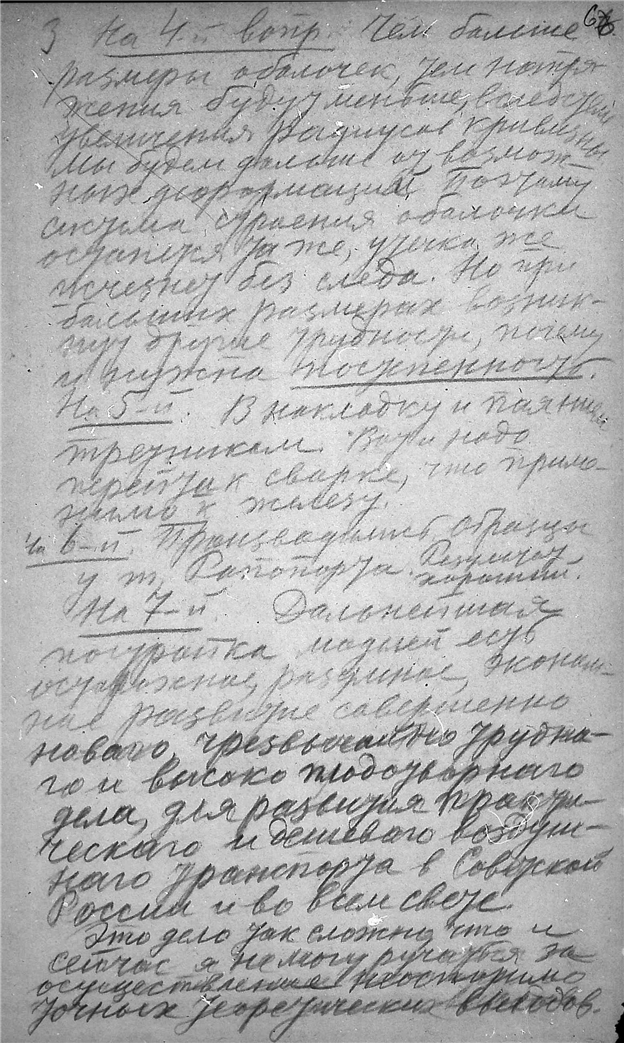 3 На 4-й вопр. Чем больше 676
размеры оболочек, тем натря
жения будут меньше, вследствие
увеличения радиусов кривизны
Мы будем дальше от возмож-
ных деформаций. Поэтому
система строения оболочки
останется та же, утечка же
исчезнет без следа. Но при
больших размерах возник-
нут другие трудности, почему
и нужна постепенность.
На 5-й. В накладку и паяние
третником. Вот и надо
перейти к сварке, что прило-
жимо к железу.
На 6-й. Производились образцы
у т. Рапопорта. Результат
хороший.
На 7-й. Дальнейшая
постройка моделей есть
осторожное, разумное, эконом-
ное развитие совершенно
новаго, чрезвычайно трудна-
го и высоко плодотворнаго
дела, для развития практи-
ческаго и дешеваго воздуш-
наго транспорта в Советской
России и во всем свете.
Это дело так сложно, что и
сейчас я не могу ручаться за
осуществление неоспоримо
точных теоретических выводов.